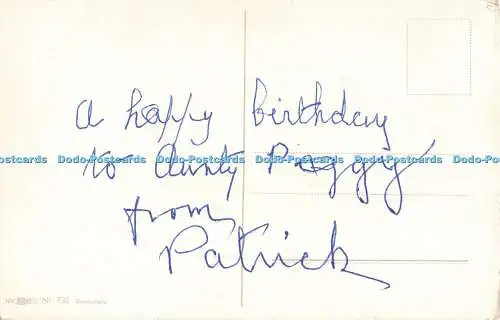 a happy birthday
to Aunty Peggy
from
Patrick
Dodo-Postcards Dodo-Postcards Dodo-Postcards Dodo-Postcards Dodo-Postcards Dodo-Postcards
Nr. 732